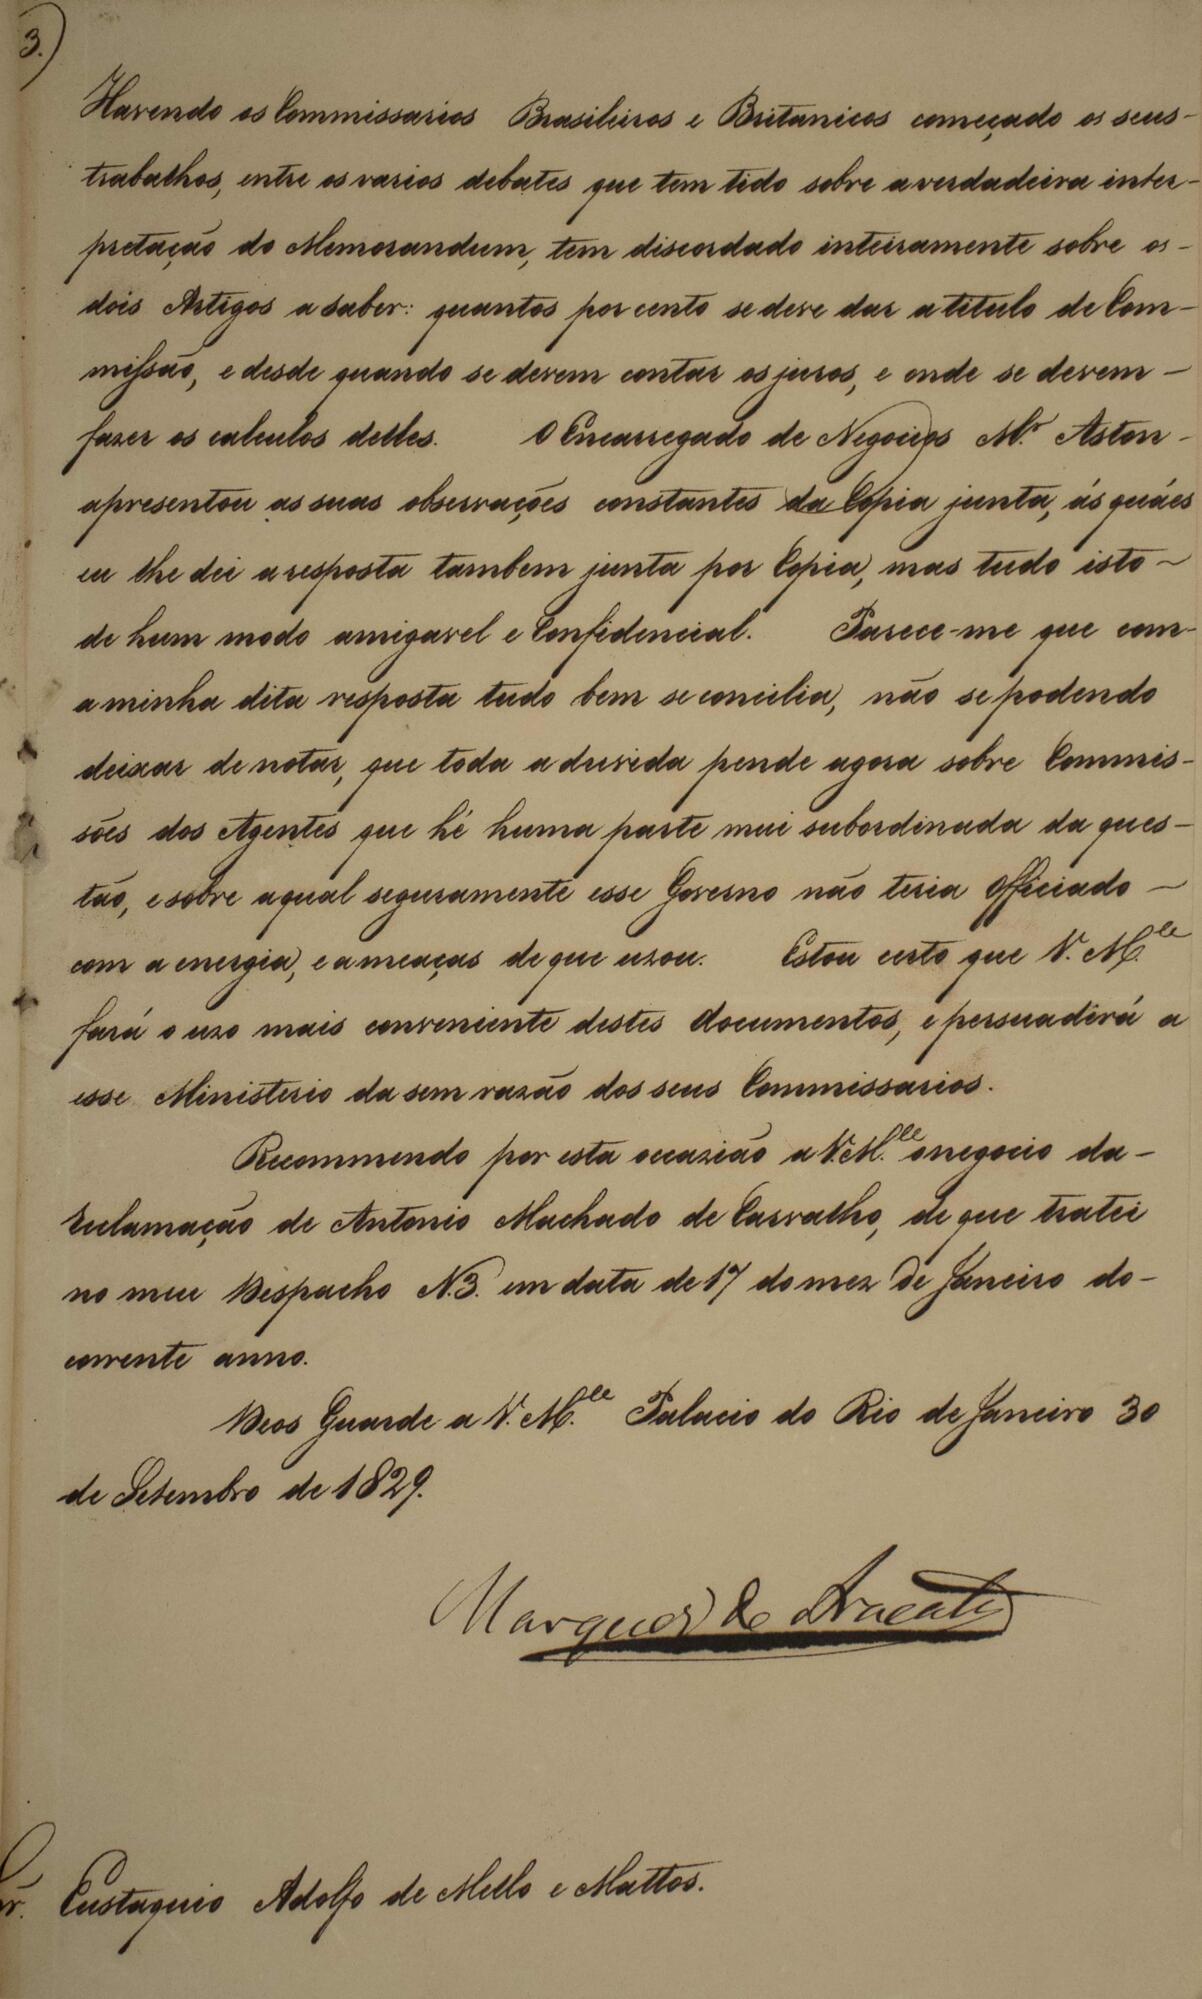 3.)
Havendo os Commissarios Brasileiros e Britanicos começado os seus-
trabalhos, entre os varios debates que tem tido sobre a verdadeira inter-
pretação do Memorandum, tem discordado inteiramente sobre os-
dois Artigos a saber: quantos por cento se deve dar a titulo de Com-
missão, e desde quando se devem contar os juros, e onde se devem-
fazer os calculos delles. O Encarregado de Negocios Mr. Aston-
apresentou as suas observações constantes da Copia junta, ás quáes
eu lhe dei a resposta tambem junta por Copia, mas tudo isto-
de hum modo amigavel e Confidencial. Parece-me que com-
a minha dita resposta tudo bem se concilia, não se podendo
deixar de notar, que toda a duvida pende agora sobre Commis-
sões dos Agentes que hé huma parte mui subordinada da ques-
tão, e sobre a qual seguramente esse Governo não teria Officiado-
com a energia, e ameaças de que uzou. Estou certo que V. Mce
fará o uzo mais conveniente destes documentos, e persuadirá a
esse Ministerio da sem razão dos seus Commissarios.
Recommendo por esta occazião a V. Mce o negocio da-
reclamação de Antonio Machado de Carvalho, de que tratei
no meu Despacho N.3. em data de 17 do mez de Janeiro do-
corrente anno.
Deos Guarde a V. Mce Palacio do Rio de Janeiro 30
de Setembro de 1829.
Marquez de Aracaty
Sr. Eustaquio Adolfo de Mello e Mattos.